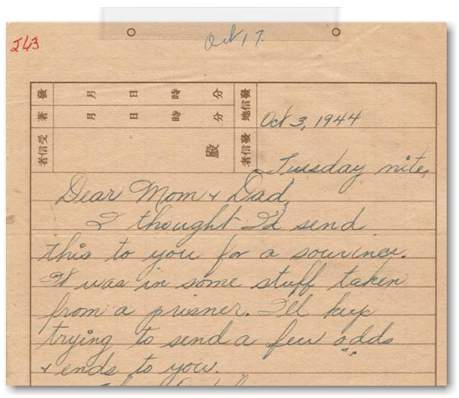 Oct 17.
發 月 日 時 分
著 月 日 時 分
受信者 殿
發信地
發信者
Oct 3, 1944
Tuesday nite,
Dear Mom + Dad,
I thought I'd send
this to you for a souviner.
It was in some stuff taken
from a prisner. I'll keep
trying to send a few odds
+ ends to you.